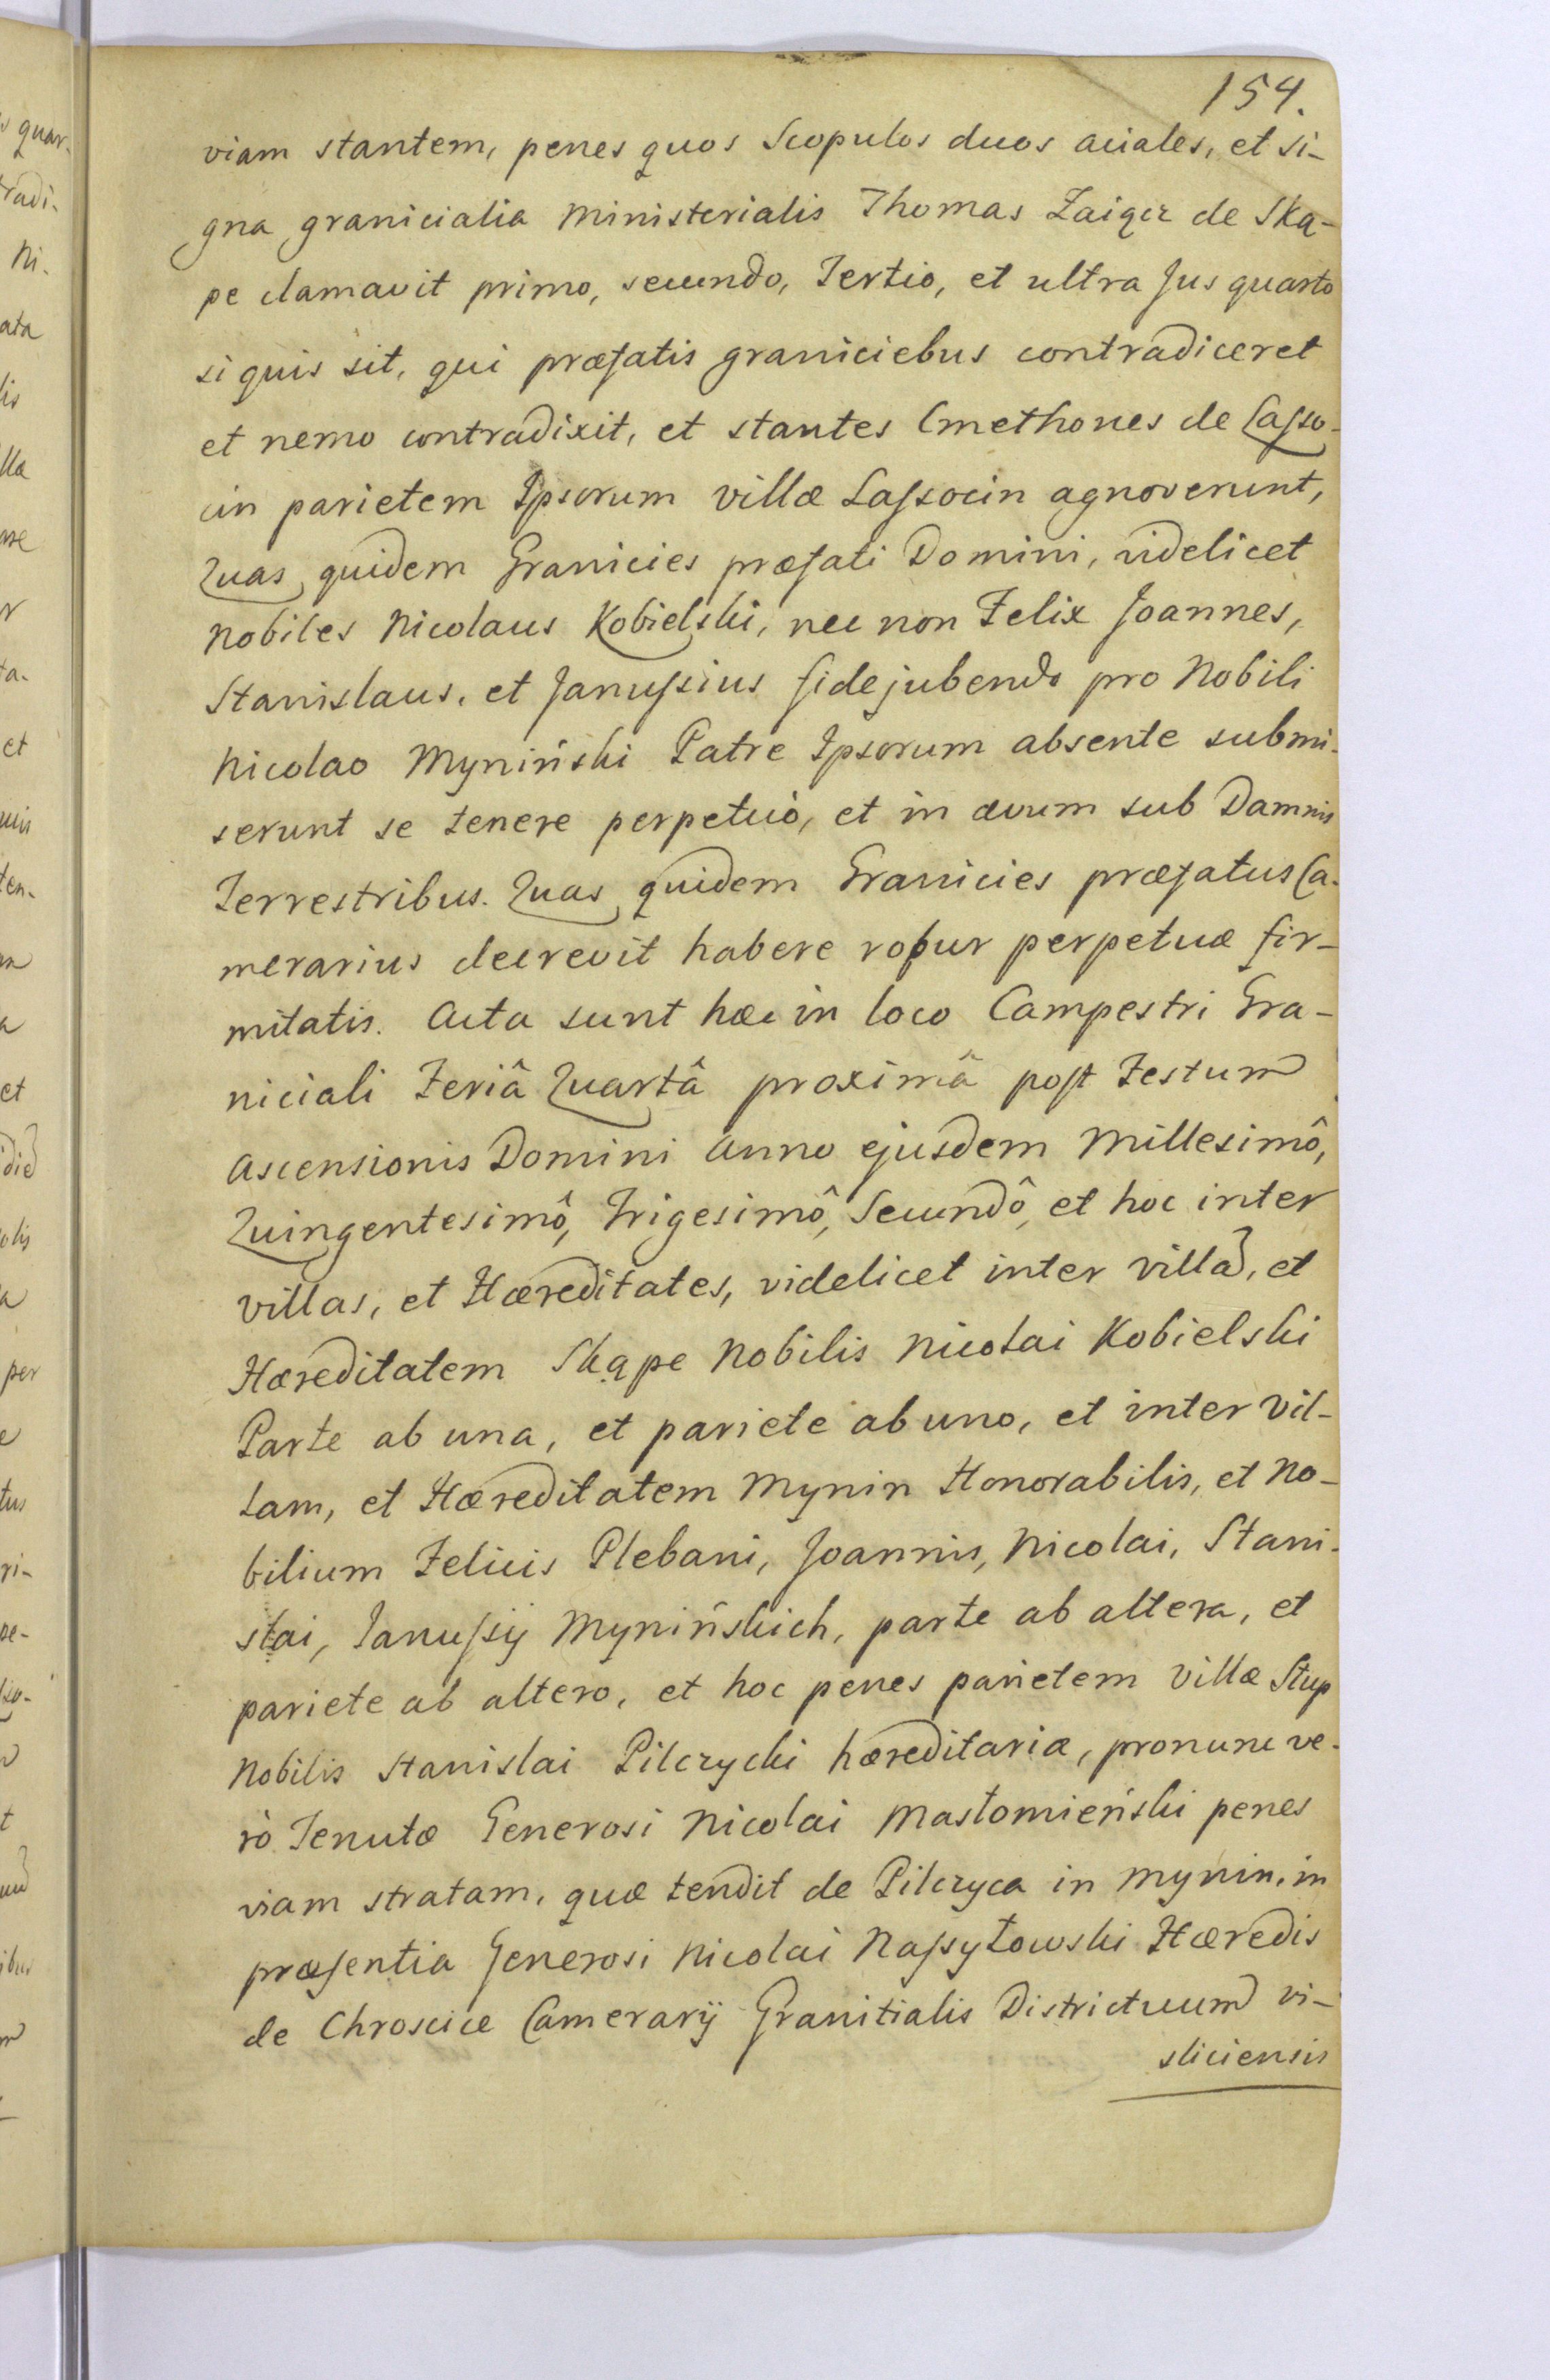 154.
viam stantem, penes quos Scopulos duos aciales, et si-
gna granicialia Ministerialis Thomas Zaiącz de Ską-
pe clamavit primo, secundo, Tertio, et ultra Jus quarto
si quis sit, qui præfatis graniciebus contradiceret
et nemo contradixit, et stantes Cmethones de Lasso-
cin parietem Ipsorum villæ Lassocin agnoverunt,
Quas quidem Granicies præfati Domini, videlicet
Nobiles Nicolaus Kobielski, nec non Felix Joannes,
Stanislaus, et Janussius fidejubendo pro Nobili
Nicolao Myniński Patre Ipsorum absente submi-
serunt se tenere perpetuò, et in ævum sub Damnis
Terrestribus. Quas quidem Granicies præfatus Ca-
merarius decrevit habere robur perpetuæ fir-
mitatis. Acta sunt hæc in loco Campestri Gra-
niciali Feriâ Quartâ proximâ post Festum
Ascensionis Domini Anno ejusdem Millesimô,
Quingentesimô, Trigesimô, Secundô, et hoc inter
villas, et Hæreditates, videlicet inter villam, et
Hæreditatem Skąpe Nobilis Nicolai Kobielski
Parte ab una, et pariete ab uno, et inter Vil-
lam, et Hæreditatem Mynin Honorabilis, et No-
bilium Felicis Plebani, Joannis, Nicolai, Stani-
slai, Janussij Mynińskich, parte ab altera, et
pariete ab altero, et hoc penes parietem Villæ Słup
Nobilis Stanislai Pilczycki hæreditariæ, pronunc ve-
rò Tenutæ Generosi Nicolai Masłomieński penes
viam stratam, quæ tendit de Pilczyca in Mynin, in
præsentia Generosi Nicolai Nassytowski Hæredis
de Chroscice Camerarij Granitialis Districtuum Vi-
sliciensis